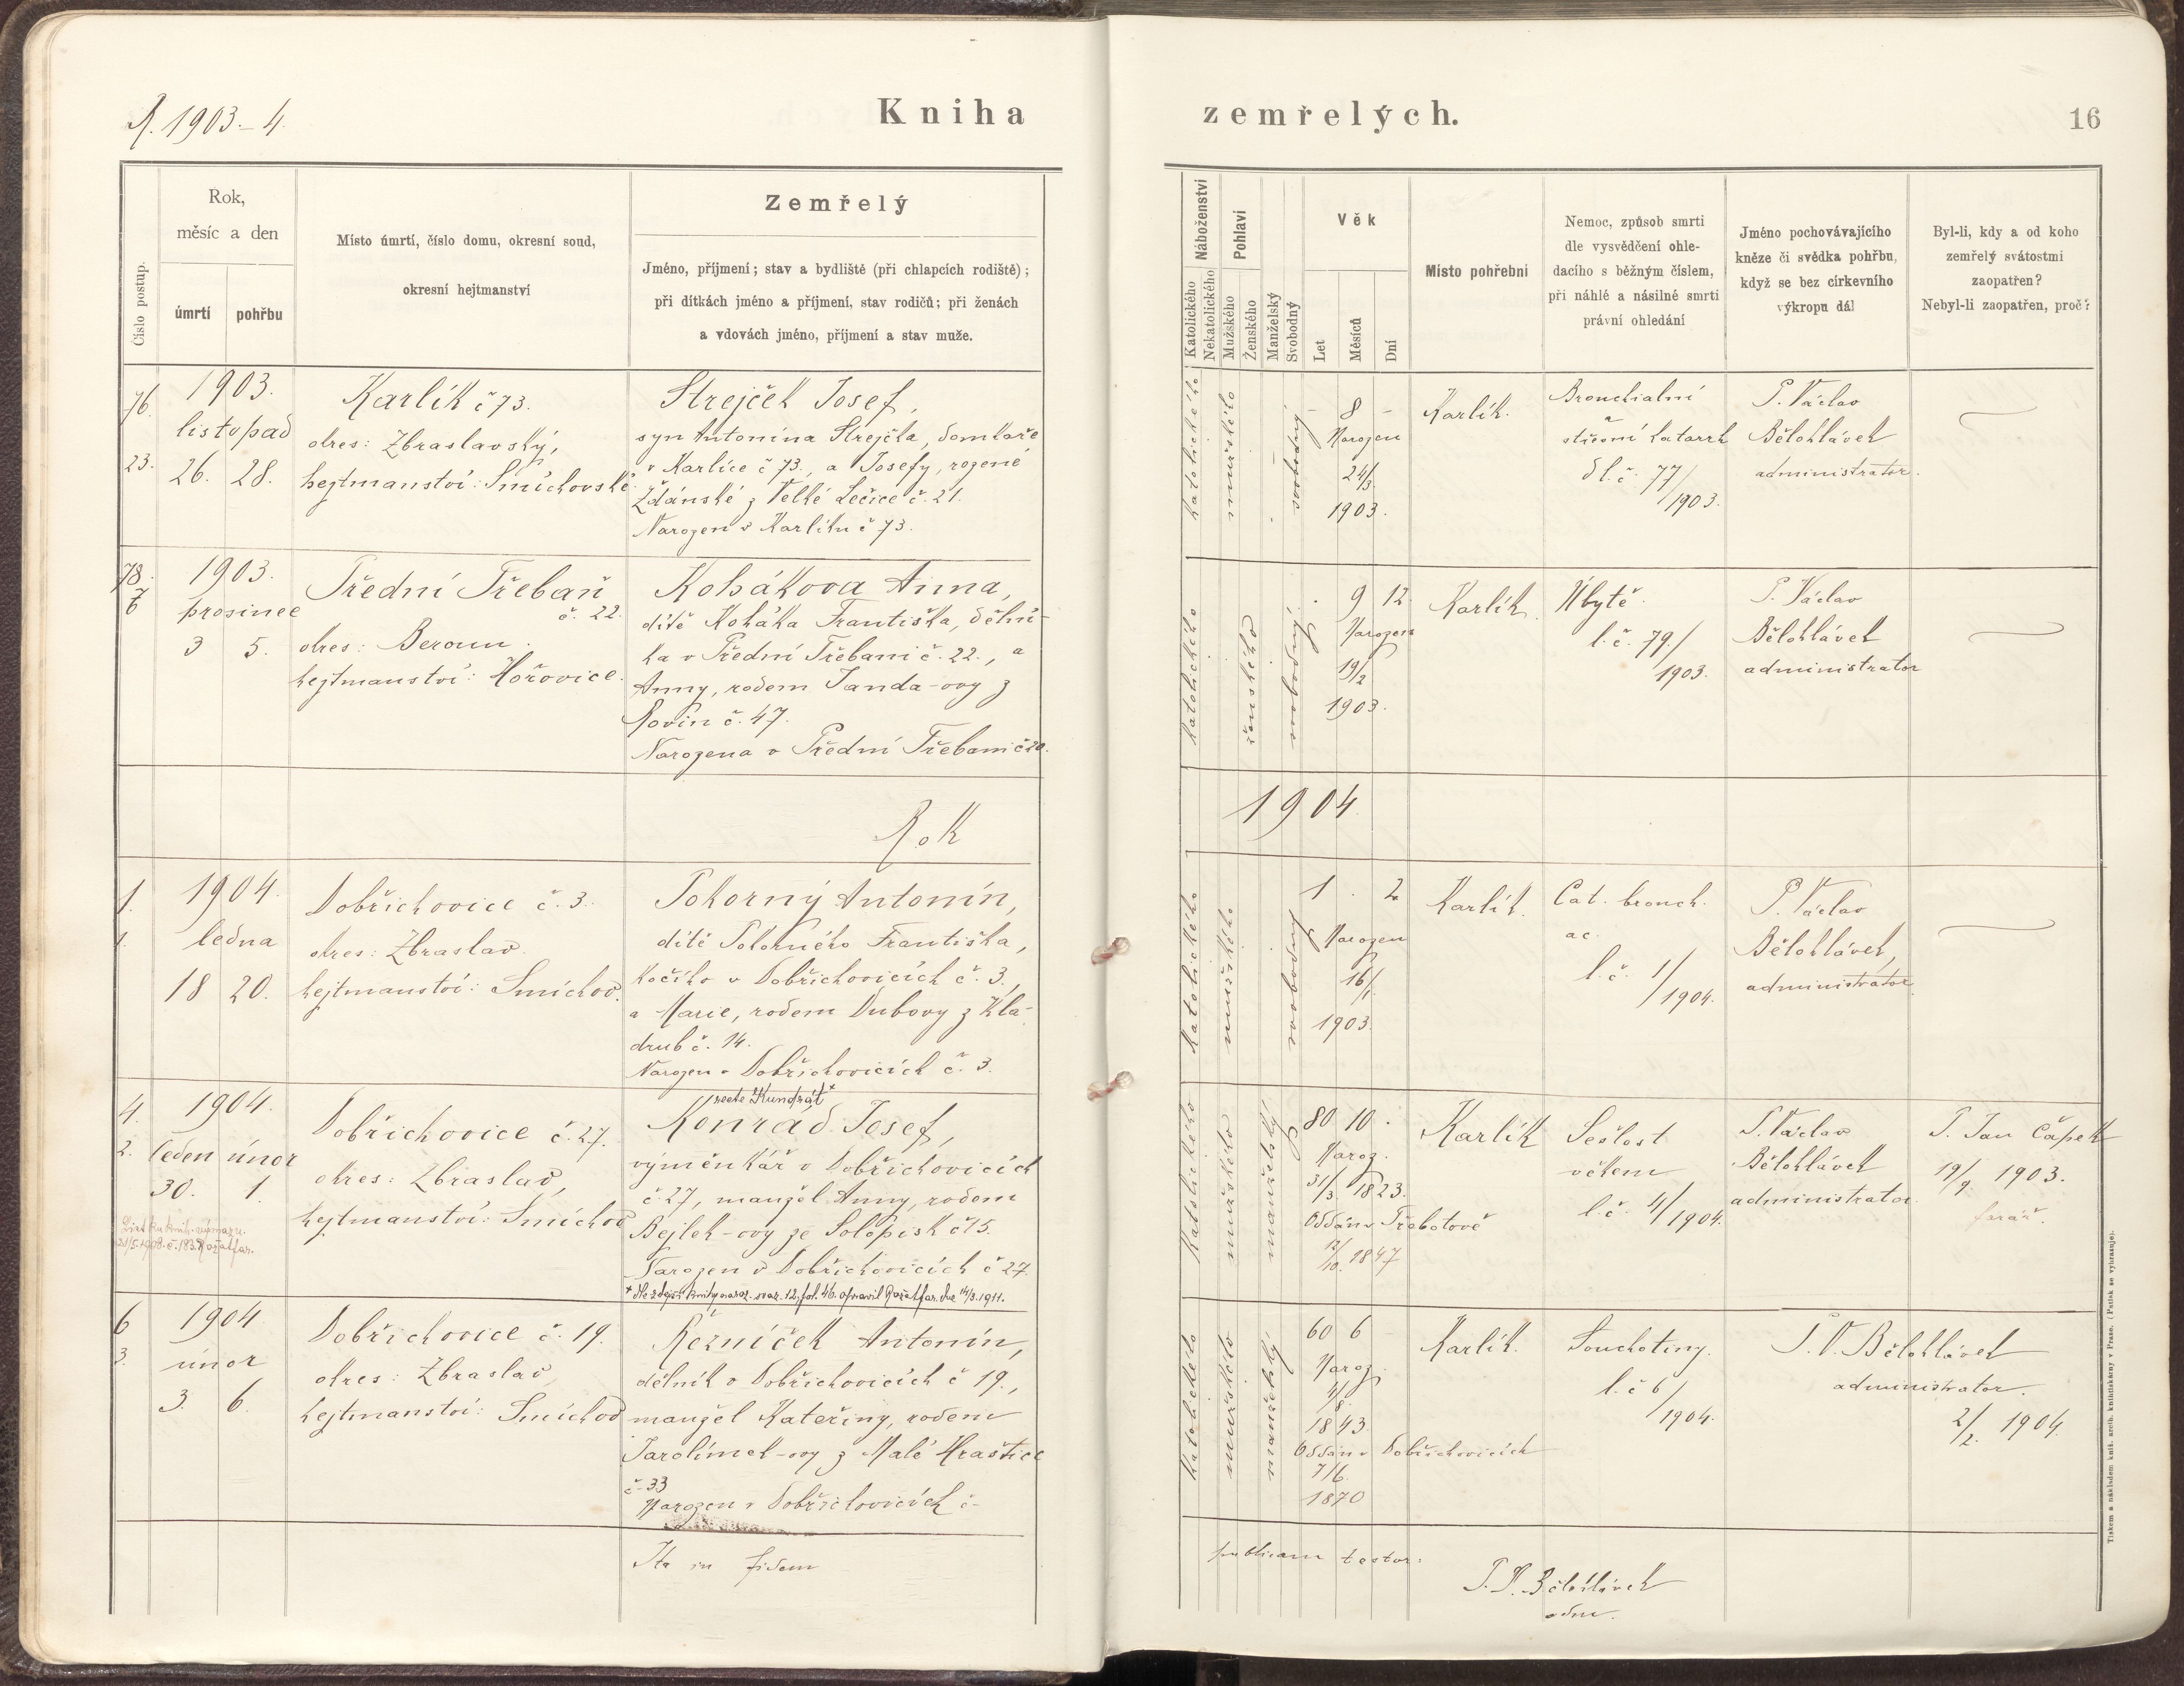 R. 1903-4.
Kniha
zemřelých.
16
Číslo postup.
Rok,
měsíc a den
úmrtí
pohřbu
Místo úmrtí, číslo domu, okresní soud,
okresní hejtmanství
Zemřelý
Jméno, příjmení; stav a bydliště (při chlapcích rodiště);
při dítkách jméno a příjmení, stav rodičů; při ženách
a vdovách jméno, příjmení a stav muže.
Náboženství
Katolického
Nekatolického
Pohlaví
Mužského
Ženského
Manželský
Svobodný
Věk
Let
Měsíců
Dní
Místo pohřební
Nemoc, způsob smrti
dle vysvědčení ohle-
dacího s běžným číslem,
při náhlé a násilné smrti
právní ohledání
Jméno pochovávajícího
kněze či svědka pohřbu,
když se bez církevního
výkropu dál
Byl-li, kdy a od koho
zemřelý svátostmi
zaopatřen?
Nebyl-li zaopatřen, proč?
76.
23.
1903.
listopad
26. 28.
Karlík č 73.
okres: Zbraslavský,
hejtmanství: Smíchovské.
Strejček Josef,
syn Antonína Strejčka, domkaře
v Karlíce č 73., a Josefy, rozené
Žďánské z Velké Lečice č. 21.
Narozen v Karlíku č 73.
katolického
mužského
svobodný
- 8 -
Narozen
24/3
1903.
Karlík.
Bronchialní
a
střevní katarrh
dl. č. 77/
1903.
P. Václav
Bělohlávek
administrator.
78.
7
6
1903.
prosinec
3 5.
Přední Třebaň
č. 22.
okres: Beroun.
hejtmanství: Hořovice.
Kohákova Anna,
dítě Koháka Františka, dělní-
ka v Přední Třebani č. 22., a
Anny, rodem Janda-ovy z
Rovin č. 47.
Narozena v Přední Třebani č 20.
katolického
ženského
svobodný
. 9 12.
Narozen
19/2
1903.
Karlík.
Úbytě.
l. č. 79./
1903.
P. Václav
Bělohlávek
administrator
Rok
1904.
1.
1.
1904.
ledna
18 20.
Dobřichovice č. 3.
okres: Zbraslav.
hejtmanství: Smíchov.
Pokorný Antonín,
dítě Pokorného Františka,
kočího v Dobřichovicích č. 3,
a Marie, rodem Dubovy z Kla-
drub č. 14.
Narozen v Dobřichovicích č. 3.
Katolického
mužského
svobodný
1 . 2
Narozen
16/1
1903.
Karlík.
Cat. bronch.
ac.
l. č. 1/
1904.
P. Václav
Bělohlávek,
administrator
4.
2.
1904.
leden únor
30. 1.
Dobřichovice č. 27.
okres: Zbraslav,
hejtmanství: Smíchov
recte Kundrát +
Konrád Josef,
výměnkář v Dobřichovicích
č. 27, manžel Anny, rodem
Bejlek-ovy ze Solopisk č 15.
Narozen v Dobřichovicích č 27.
+ dle zdejší knihy naroz. svaz. 12. fol. 46. opravil Rožat far. dne 14/3. 1911.
Katolického
mužského
manželský
80 10 .
Naroz.
31/3. 1823.
Oddán v Třebotově
12/10. 1847
Karlík
Sešlost
věkem
l. č. 4/1904.
P. Václav
Bělohlávek
administrator.
P. Jan Čápek
19/9. 1903.
farář.
6
3.
1904
únor
3. 6.
Dobřichovice č. 19.
okres: Zbraslav,
hejtmanství: Smíchov
Řezníček Antonín,
dělník v Dobřichovicích č 19.,
manžel Kateřiny, rodem
Jarolímek-ovy z Malé Hraštice
č- 33
Narozen v Dobřichovicích č-
Katolického
mužského
manželský
60 6 -
Naroz.
4/8.
1843.
Oddán v Dobřichovicích
7/6.
1870
Karlík.
Souchotiny.
l. č 6/
1904.
P. V. Bělohlávek
administrator.
2/2. 1904.
Ita in fidem
publicam testor:
P. V. Bělohlávek
adm.
Tiskem a nákladem kníž. arcib. knihtiskárny v Praze. (Patisk se vyhrazuje).